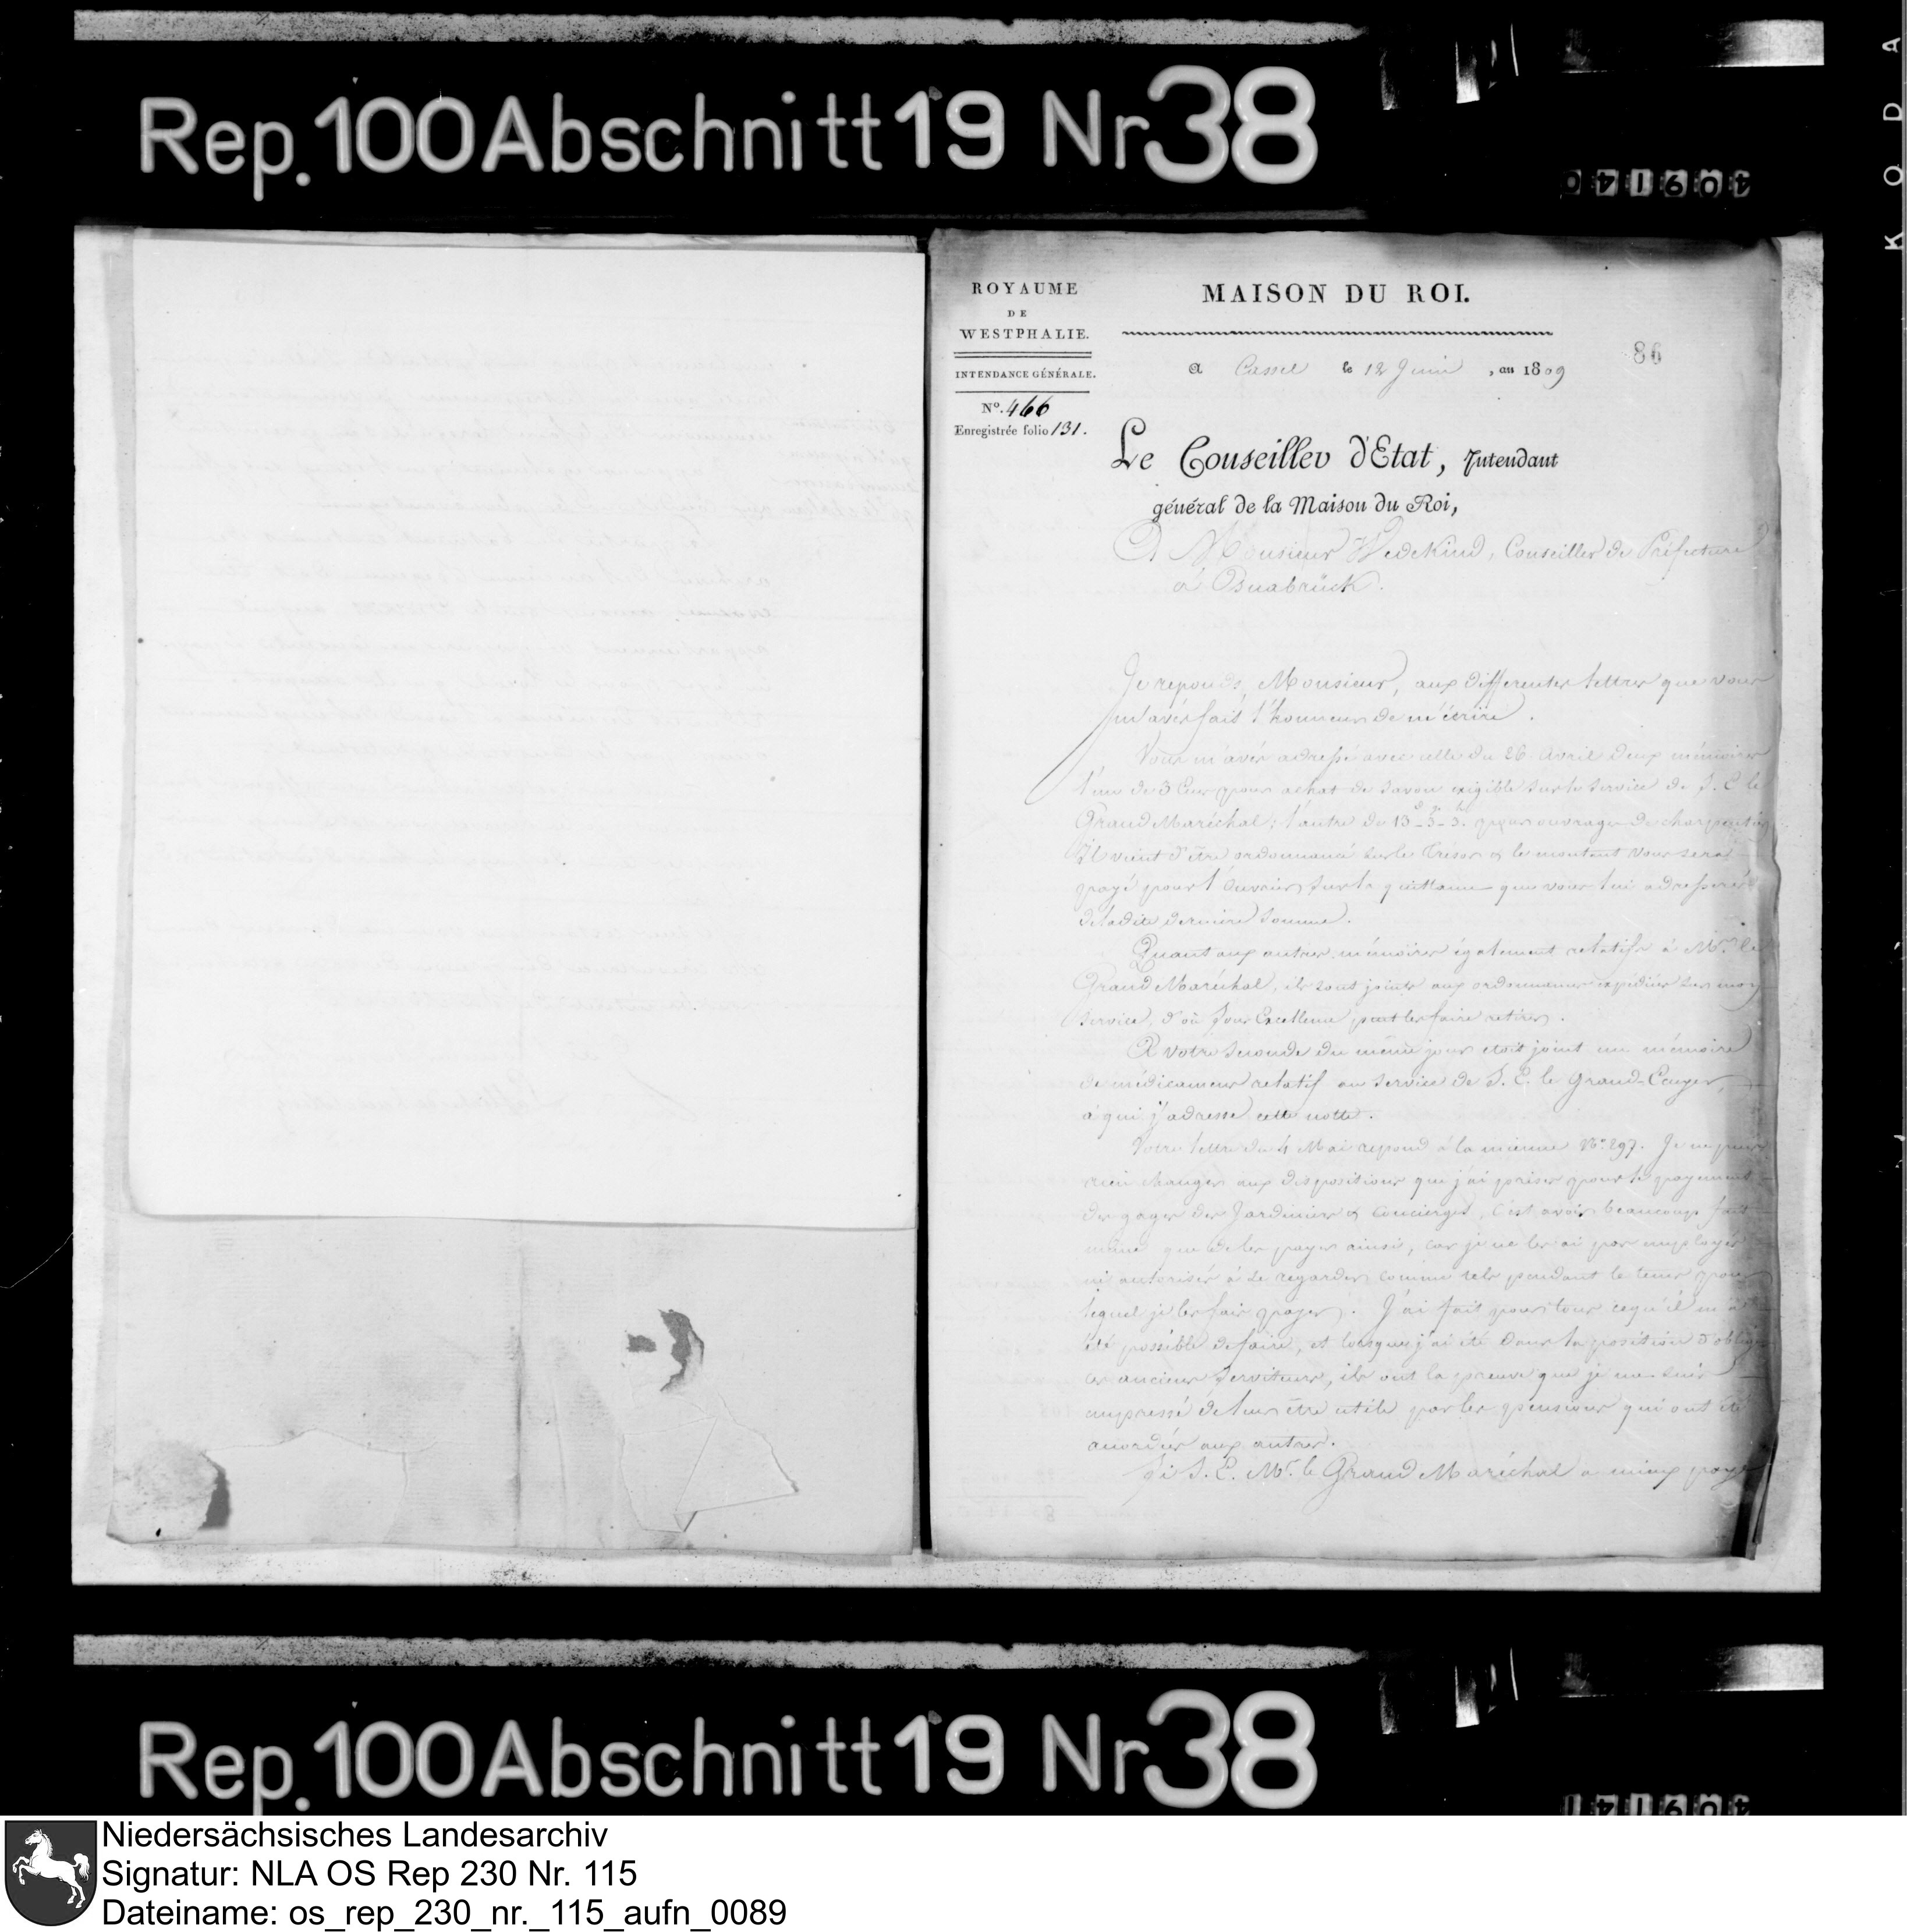 Rep. 100 Abschnitt 19 Nr 38
KODA
ROYAUME
DE
WESTPHALIE.
INTENDANCE GÉNÉRALE.
N°. 466
Enregistrée folio 131.
MAISON DU ROI.
86
A Cassel le 12 Juin, an 1809
Le Conseiller d'Etat, Intendant
général de la Maison du Roi,
A Monsieur Wedekind, Conseiller de Préfecture
à Osnabrück.
Je reponds, Monsieur, aux differentes lettres que vous
m'avés fait l'honneur de m'écrire.
Vous m'avés adressé avec celle du 26 Avril deux mémoires
l'un de 3 pour achat de savon exigible sur le service de S. E le
Grand Maréchal; l'autre de 13 - 3 - 3. pour ouvrages de charpentier
Il vient d'être ordonnancé sur le Trésor & le montant vous sera
payé pour l'ouvrier sur la quittance que vous lui adresserés
de ladite derniere somme.
Quant aux autres mémoires également relatifs à Mr. le
Grand Maréchal, ils sont joints aux ordonnances expédiées sur mon
service, d'où Son Excellence peut les faire retirer.
A votre seconde du même jour etoit joint un mémoire
de médicamens relatif au service de S. E. le Grand-Ecuyer,
à qui j'adresse cette notte.
Votre lettre du 4 Mai repond à la mienne N°. 297. Je ne puis
rien changer aux dispositions que j'ai prises pour le payement
des gages des Jardiniers & Concierges, c'est avoir beaucoup fait
même que de les payer ainsi, car je ne les ai pas employés
ni autorisés à se regarder comme tels pendant le tems pour
lequel je les fais payer. J'ai fait pour tous ce qu'il m'a
été possible de faire, et lorsque j'ai été dans la position d'obliger
ces anciens serviteurs, ils ont la preuve que je me suis
empressé de leur être utile par les pensions qui ont été
accordées aux autres.
Si S. E. Mr. le Grand Maréchal a mieux payé
Rep. 100 Abschnitt 19 Nr 38
Niedersächsisches Landesarchiv
Signatur: NLA OS Rep 230 Nr. 115
Dateiname: os_rep_230_nr._115_aufn_0089